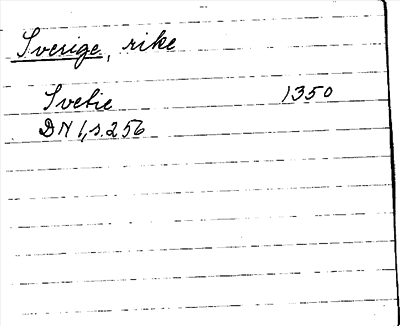 Sverige, rike
Svetie 1350
DN 1, s. 256